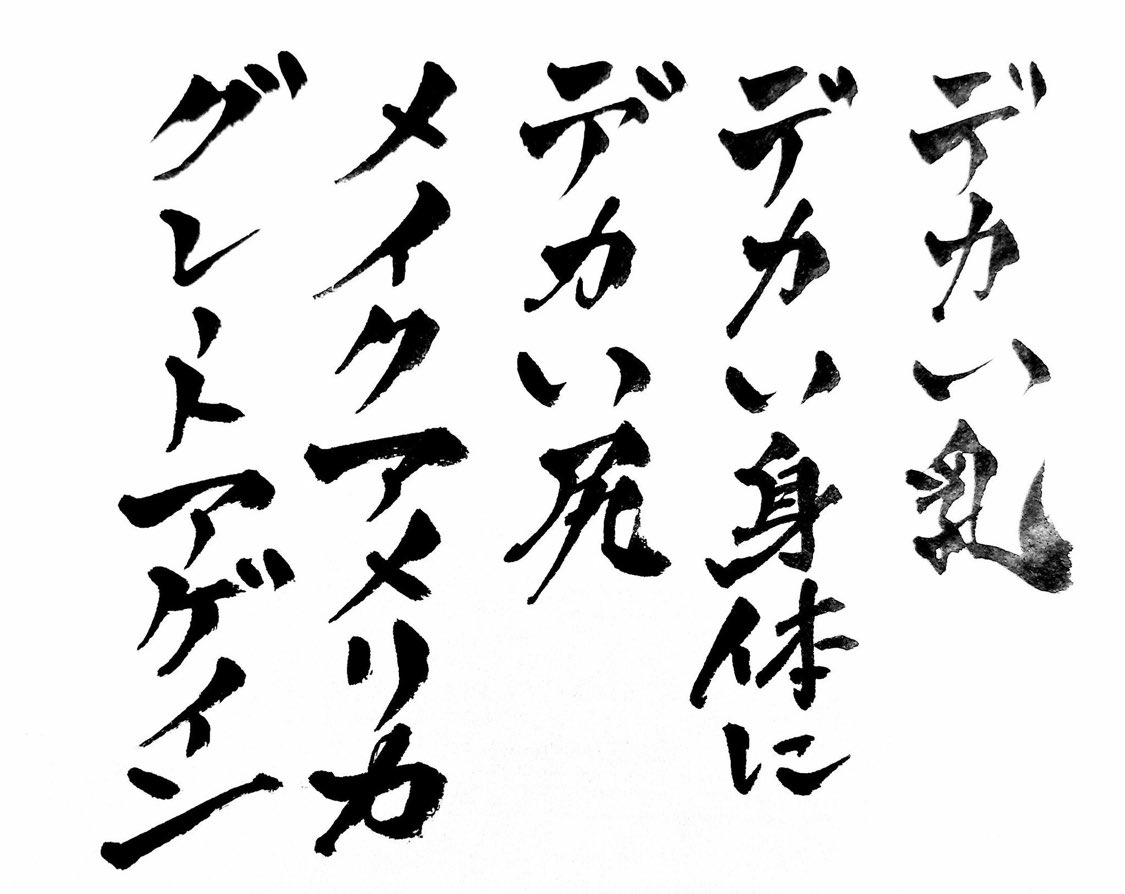 デカい乳
デカい身体に
デカい尻
メイクアメリカ
グレトアゲイン